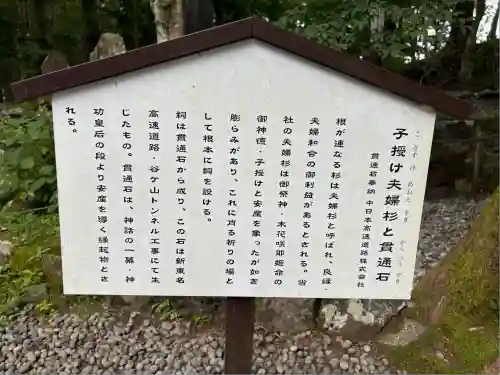 子授け夫婦杉と貫通石
こさずけ めおとすぎ かんつうせき
貫通石奉納 中日本高速道路株式会社
根が連なる杉は夫婦杉と呼ばれ、良縁・
夫婦和合の御利益があるとされる。当
社の夫婦杉は御祭神・木花咲耶姫命の
御神徳・子授けと安産を象ったが如き
膨らみがあり、これに肖る祈りの場と
して根本に祠を設ける。
祠は貫通石から成り、この石は新東名
高速道路・谷ケ山トンネル工事にて生
じたもの。貫通石は、神話の一幕、神
功皇后の段より安産を導く縁起物とさ
れる。